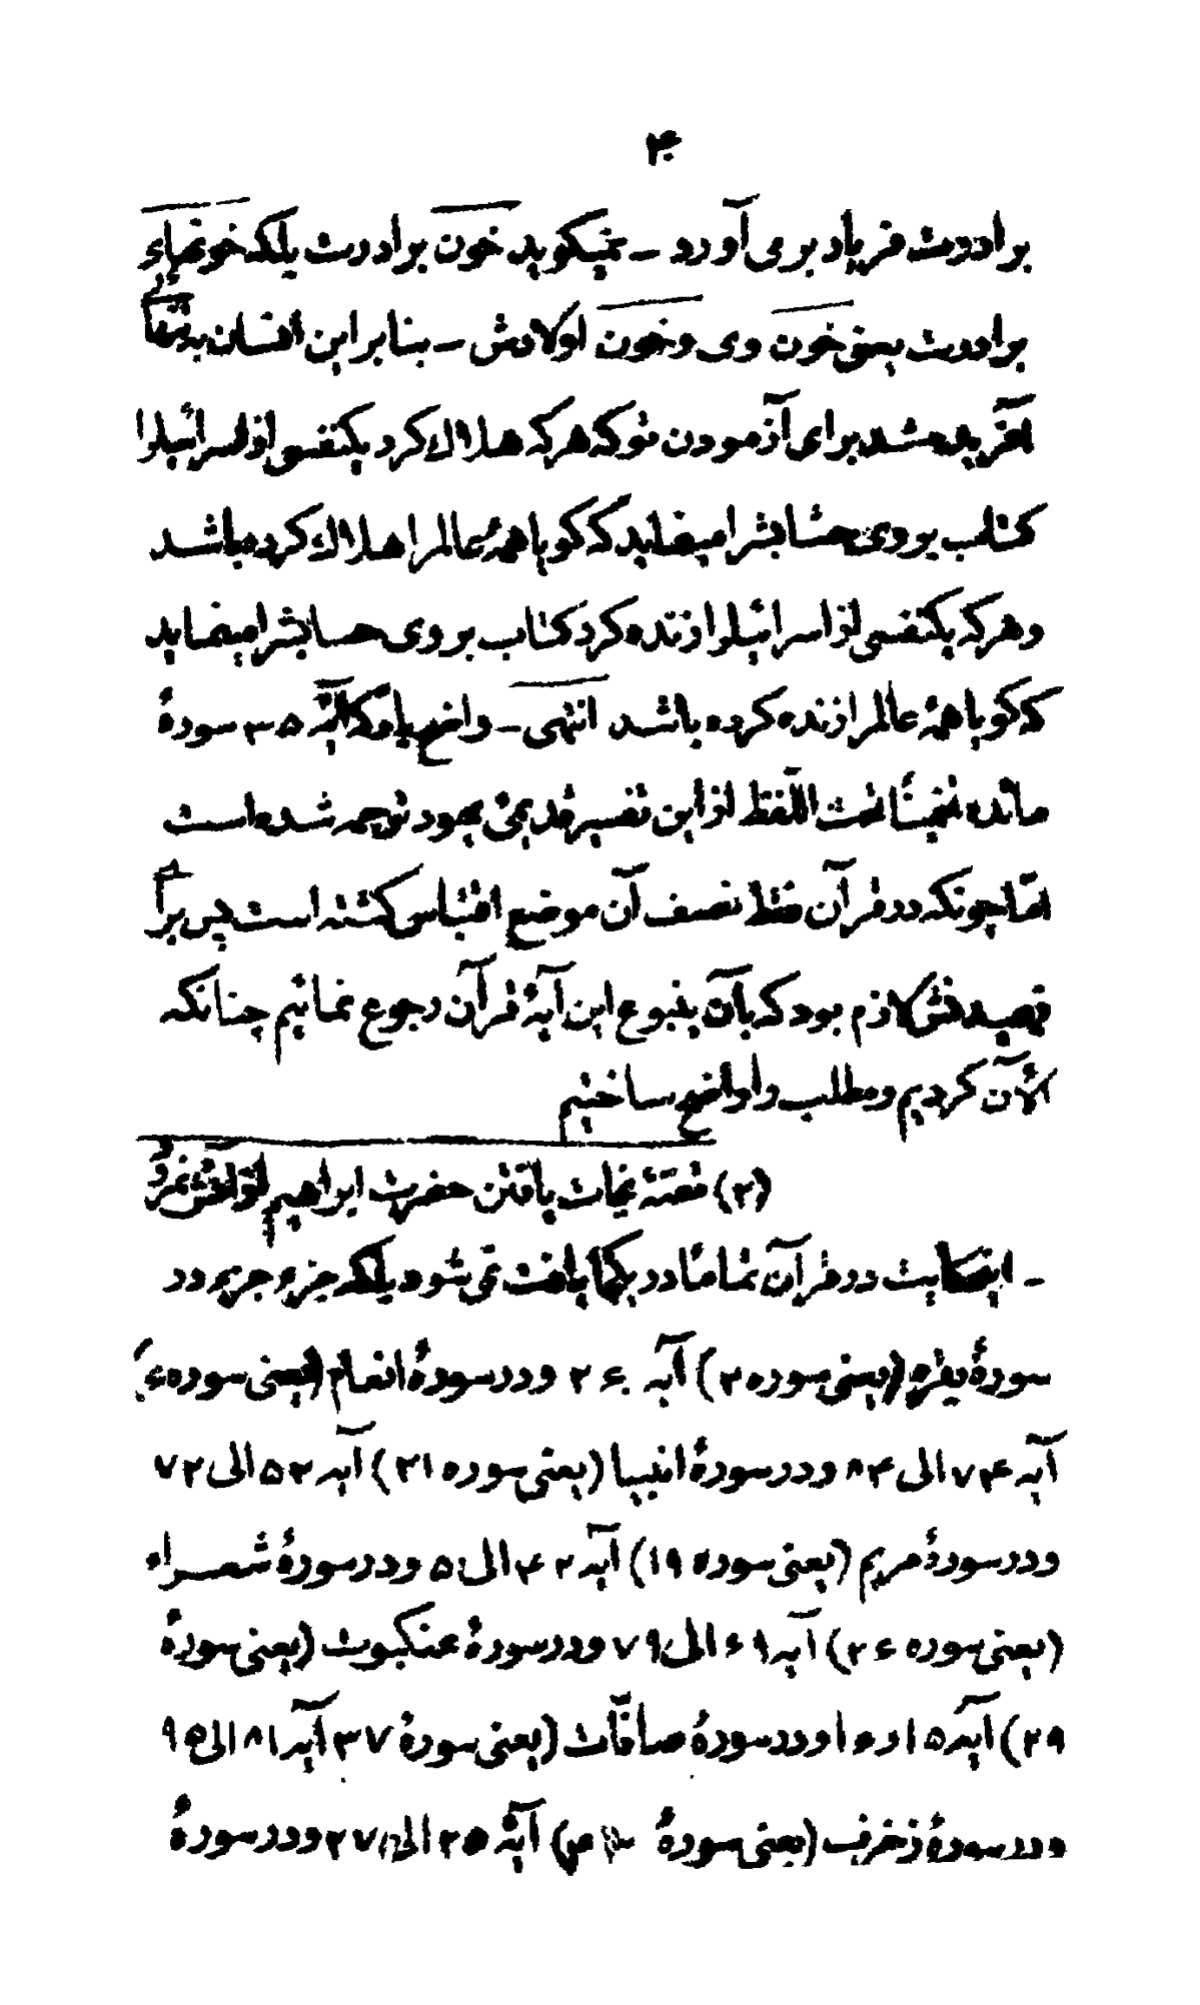 ۴
برادرت فریاد برمی آورد ــ نمیکوید خون برادرت بلکه خونهای
برادرت یعنی خون وی و خون اولادش ــ بنابراین انسان به تنها
آفریده شد برای آزمودن تو که هرکه هلاك کرد یکنفسی از اسرائیلرا
کتاب بروی حسابشرا مینماید که کویا همهٔ عالمرا هلاك کرده باشد
و هرکه یکنفسی از اسرائیلرا زنده کرد کتاب بروی حسابشرا مینماید
که کویا همهٔ عالمرا زنده کرده باشد انتهی ــ واضح باد که آیهٔ ۳۵ سورهٔ
مائده تخمینًا تحت اللّفظ از این تفسیر قدیمیٔ یهود ترجمه شده است
امّا چونکه در قرآن فقط نصف آن موضع اقتباس کشته است پس برای
فهمیدنش لازم بود که بآن ینبوع این آیهٔ قرآن رجوع نمائیم چنانکه
الآن کردیم و مطلب را واضح ساختیم
(۲) قصّهٔ نجات یافتن حضرت ابراهیم از آتش نمرود
ــ اینحکایت در قرآن تمامًا در یکجا یافت نمی شود بلکه جزء جزء در
سورهٔ بقره (یعنی سوره ۲) آیه ۲۶۰ و در سورهٔ انعام (یعنی سوره ۶)
آیه ۷۴ الی ۸۴ و در سورهٔ انبیا (یعنی سوره ۲۱) آیه ۵۲ الی ۷۲
و در سورهٔ مریم (یعنی سوره ۱۹) آیه ۴۲ الی ۵۰ و در سورهٔ شعراء
(یعنی سوره ۲۶) آیه ۶۹ الی ۷۹ و در سورهٔ عنکبوت (یعنی سورهٔ
۲۹) آیه ۱۵ و ۱۶ و در سورهٔ صافّات (یعنی سورهٔ ۳۷ آیه ۸۱ الی ۹۵
و در سورهٔ زخرف (یعنی سورهٔ آیهٔ ۲۵ الی ۲۷ و در سورهٔ